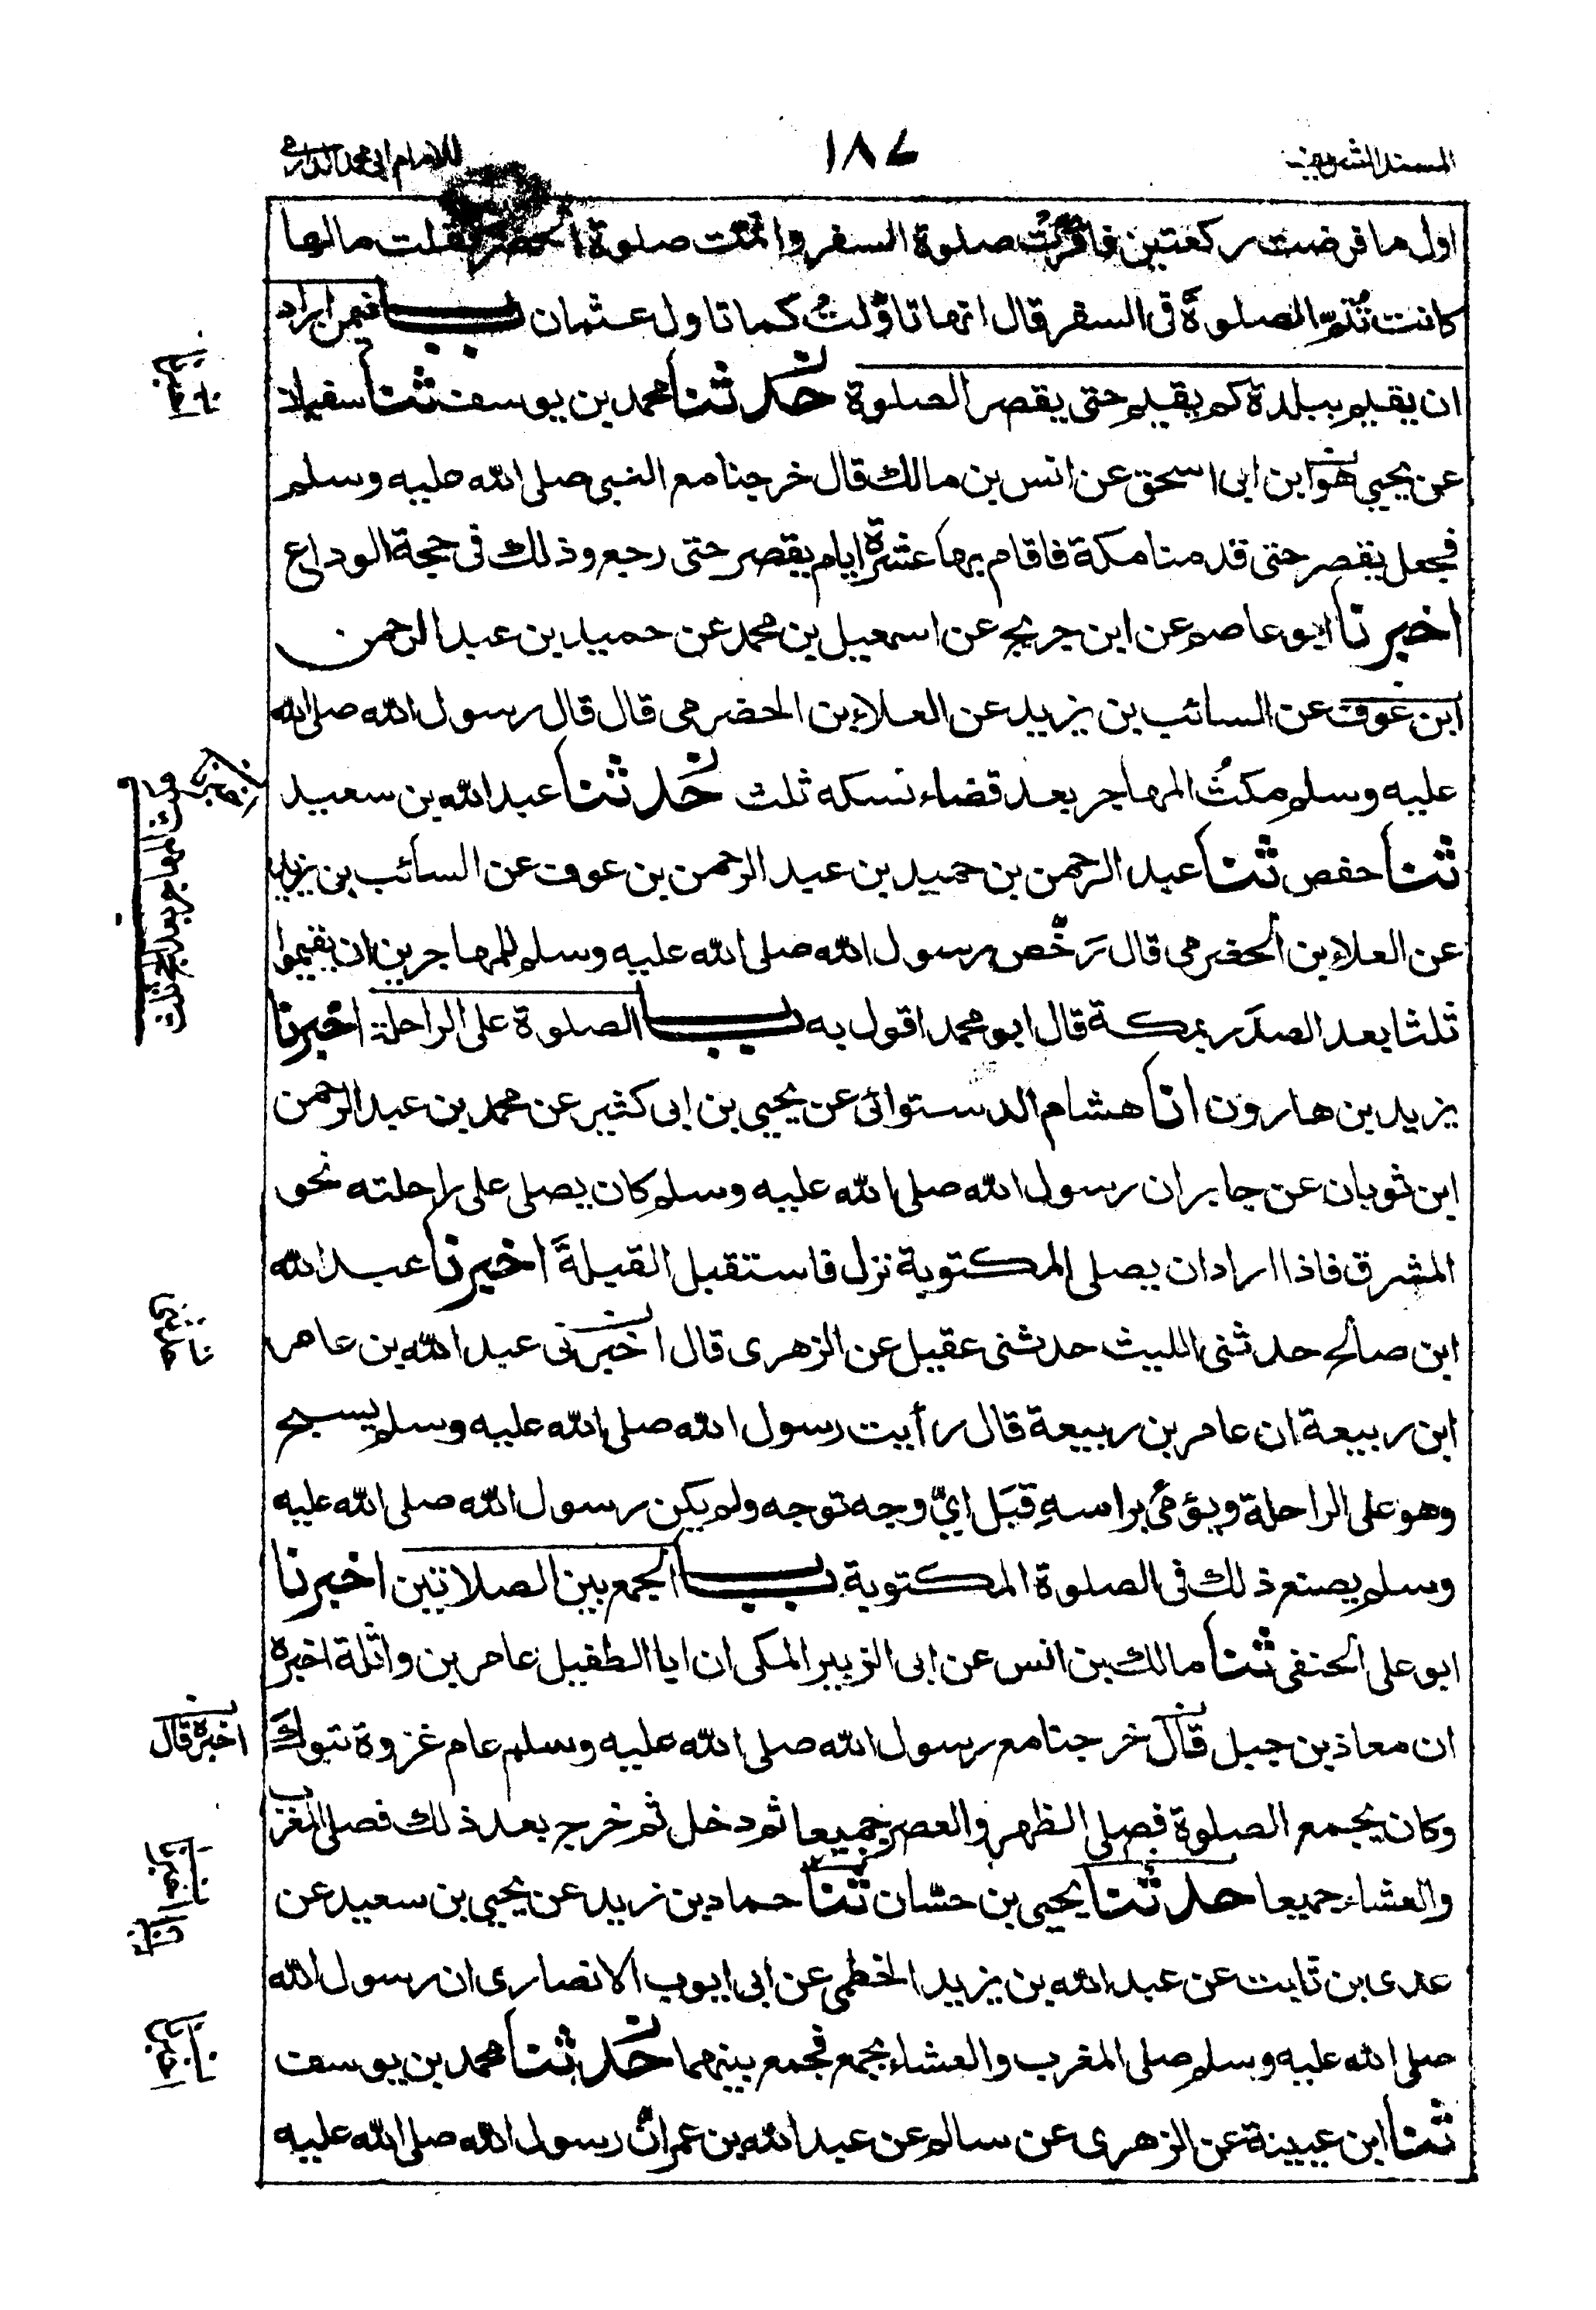 المسند الشريف
١٨٧
للامام ابى محمد الدارمى
اول ما فرضت ركعتين فاقرت صلوة السفر واتمت صلوة الحضر فقلت مالها
كانت تُتمّ الصلوةَ فى السفر قال انها تاوّلتْ كما تاول عثمان باب فيمن اراد
ان يقيم ببلدة كم يقيم حتى يقصر الصلوة حدثنا محمد بن يوسف ثنا سفيان
عن يحيى هو ابن ابى اسحق عن انس بن مالك قال خرجنا مع النبى صلى الله عليه وسلم
فجعل يقصر حتى قدمنا مكة فاقام بها عشرة ايام يقصر حتى رجع وذلك فى حجة الوداع
اخبرنا ابو عاصم عن ابن جريج عن اسمعيل بن محمد عن حميد بن عبد الرحمن
ابن عوف عن السائب بن يزيد عن العلاء بن الحضرمى قال قال رسول الله صلى الله
عليه وسلم مكثُ المهاجر بعد قضاء نسكه ثلث حدثنا عبد الله بن سعيد
ثنا حفص ثنا عبد الرحمن بن حميد بن عبد الرحمن بن عوف عن السائب بن يزيد
عن العلاء بن الحضرمى قال رَخّص رسول الله صلى الله عليه وسلم للمهاجرين ان يقيموا
ثلثا بعد الصدَر بمكة قال ابو محمد اقول به باب الصلوة على الراحلة اخبرنا
يزيد بن هارون انا هشام الدستوائى عن يحيى بن ابى كثير عن محمد بن عبد الرحمن
ابن ثوبان عن جابر ان رسول الله صلى الله عليه وسلم كان يصلى على راحلته نحو
المشرق فاذا اراد ان يصلى المكتوبة نزل فاستقبل القبلةَ اخبرنا عبد الله
ابن صالح حدثنى الليث حدثنى عقيل عن الزهرى قال اخبرنى عبد الله بن عامر
ابن ربيعة ان عامر بن ربيعة قال رأيت رسول الله صلى الله عليه وسلم يسبح
وهو على الراحلة ويؤمئ براسهِ قِبَل ايّ وجه توجه ولم يكن رسول الله صلى الله عليه
وسلم يصنع ذلك فى الصلوة المكتوبة باب الجمع بين الصلاتين اخبرنا
ابو على الحنفى ثنا مالك بن انس عن ابى الزبير المكى ان ابا الطفيل عامر بن واثلة اخبره
ان معاذ بن جبل قال خرجنا مع رسول الله صلى الله عليه وسلم عام غزوة تبوكَ
وكان يجمع الصلوة فصلى الظهر والعصر جميعا ثم دخل ثم خرج بعد ذلك فصلى المغرب
والعشاء جميعا حدثنا يحيى بن حسّان ثنا حماد بن زيد عن يحيى بن سعيد عن
عدى بن ثابت عن عبد الله بن يزيد الخطمى عن ابى ايوب الانصارى ان رسول الله
صلى الله عليه وسلم صلى المغرب والعشاء بجمع فجمع بينهما حدثنا محمد بن يوسف
ثنا ابن عيينة عن الزهرى عن سالم عن عبد الله بن عمر انّ رسول الله صلى الله عليه
اخبرنا
مكث المهاجر بعد الحج ثلث
اخبره قال
اخبرنا
اخبرنا